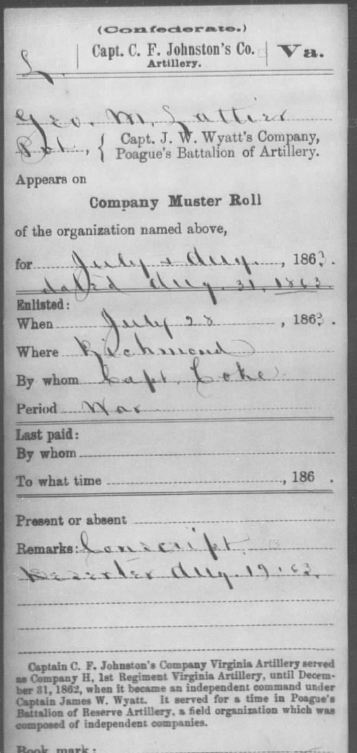 (Confederate.)
L. Capt. C. F. Johnston's Co. Va.
Artillery.
Geo. M. Lattier
Pvt., { Capt. J. W. Wyatt's Company,
Poague's Battalion of Artillery.
Appears on
Company Muster Roll
of the organization named above,
for July & Aug., 1863.
dated Aug. 31, 1863
Enlisted:
When July 28, 1863.
Where Richmond
By whom Capt. Coke
Period War
Last paid:
By whom
To what time , 186 .
Present or absent
Remarks: Conscript
Deserted Aug 19, 63.
Captain C. F. Johnston's Company Virginia Artillery served
as Company H, 1st Regiment Virginia Artillery, until Decem-
ber 31, 1862, when it became an independent command under
Captain James W. Wyatt. It served for a time in Poague's
Battalion of Reserve Artillery, a field organization which was
composed of independent companies.
Book mark: